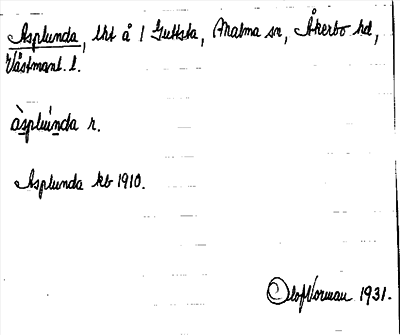 Asplunda, lht å 1 Guttsta, Malma sn, Åkerbo hd,
Västmanl. l.
àspluńda r.
Asplunda kb 1910.
Olof Norman 1931.